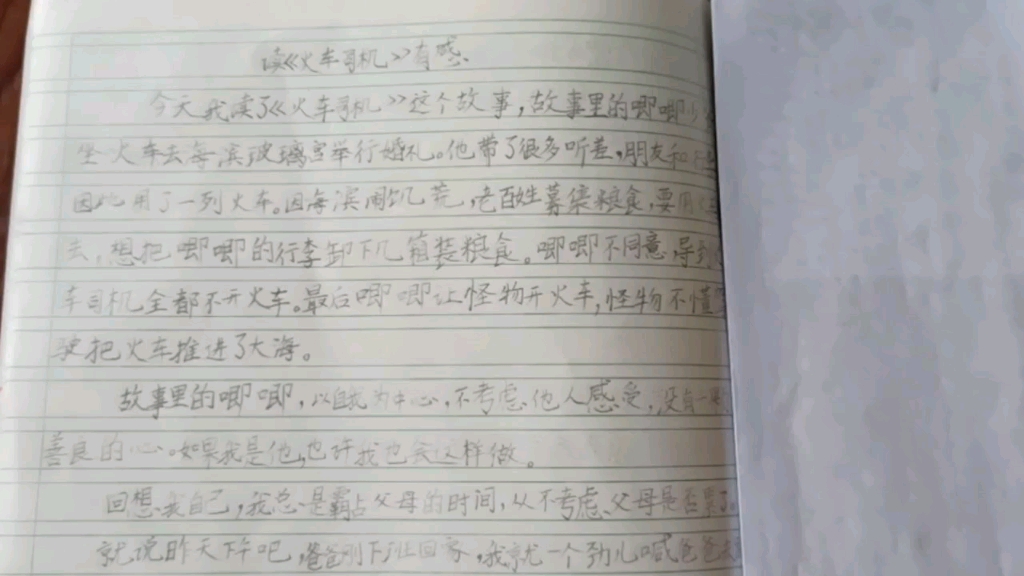 读《火车司机》有感
今天我读了《火车司机》这个故事,故事里的唧唧
坐火车去海滨玻璃宫举行婚礼。他带了很多听差,朋友和
因此用了一列火车。因海滨闹饥荒,老百姓募集粮食,要用
去,想把唧唧的行李卸下几箱装粮食。唧唧不同意,导致
车司机全都不开火车。最后唧唧让怪物开火车,怪物不懂
驶把火车推进了大海。
故事里的唧唧,以自我为中心,不考虑他人感受,没有一
善良的心。如果我是他,也许我也会这样做。
回想我自己,我总是霸占父母的时间,从不考虑父母是否累了
就说昨天下午吧,爸爸刚下班回家,我就一个劲儿喊爸爸